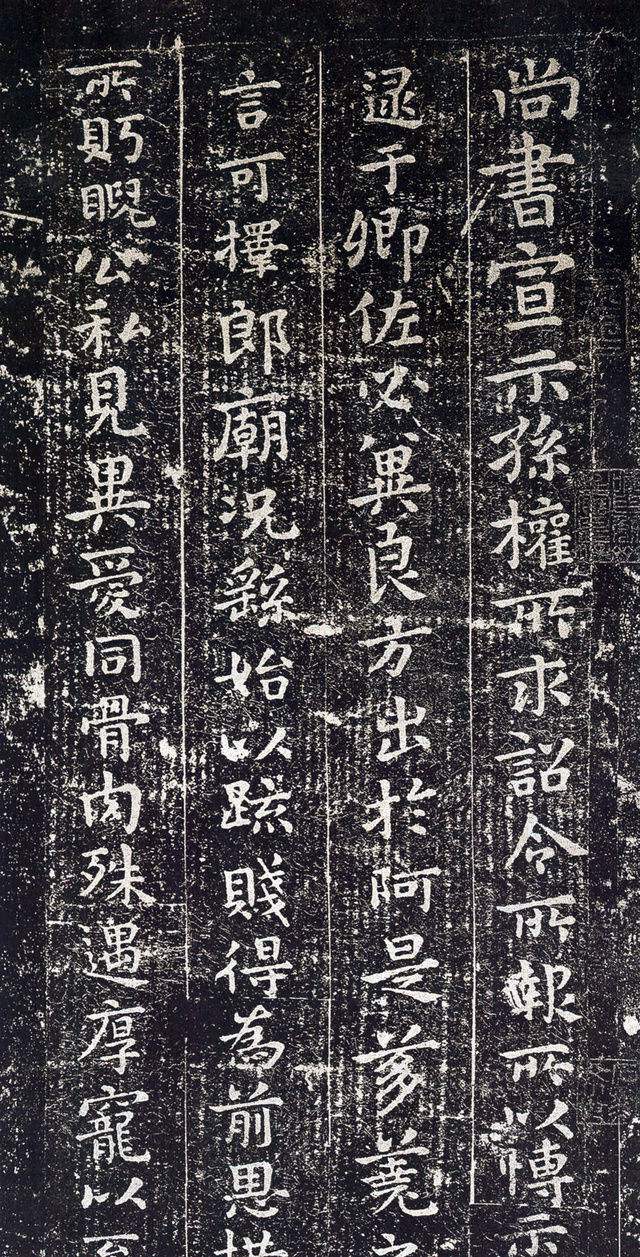 尚書宣示孫權所求詔令所報所以博示
逮于卿佐必冀良方出於阿是芻蕘之
言可擇郎廟況繇始以疏賤得為前恩
所眄睨公私見異愛同骨肉殊遇厚寵以至